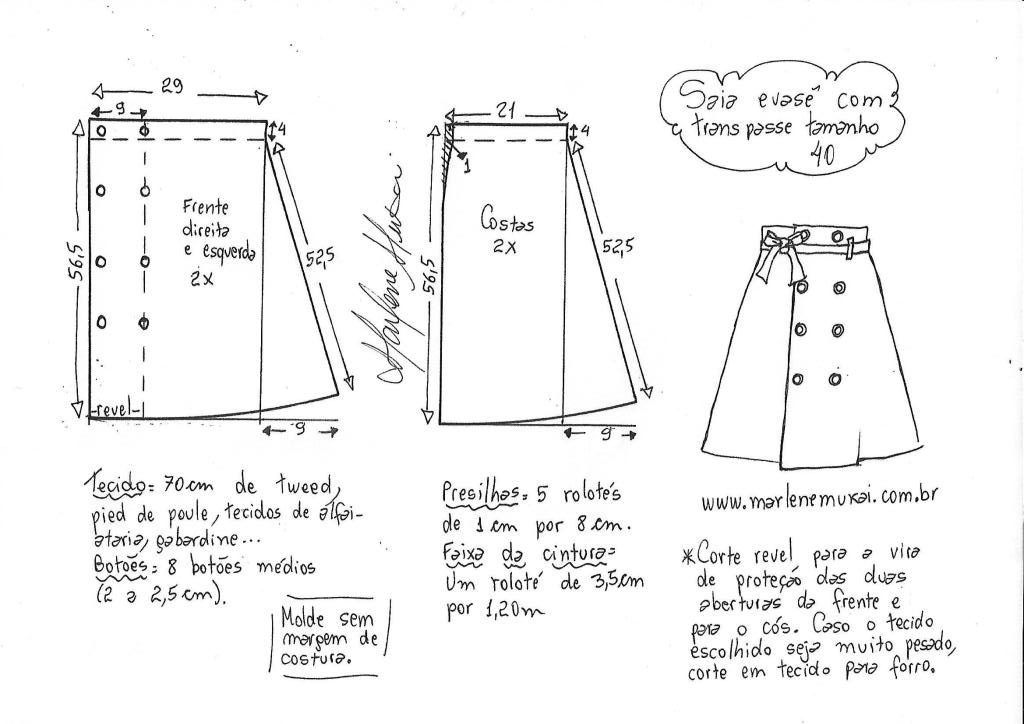 29
9
4
56,5
Frente
direita
e esquerda
2x
52,5
-revel-
9
Marlene Mukai
21
4
1
56,5
Costas
2x
52,5
9
Saia evasê com
transpasse tamanho
40
Tecido= 70cm de tweed,
pied de poule, tecidos de alfai-
ataria, gabardine...
Botões= 8 botões médios
(2 a 2,5cm).
Molde sem
margem de
costura.
Presilhas= 5 rolotés
de 1cm por 8cm.
Faixa da cintura=
Um roloté de 3,5cm
por 1,20m
www.marlenemukai.com.br
*Corte revel para a vira
de proteção das duas
aberturas da frente e
para o cós. Caso o tecido
escolhido seja muito pesado,
corte em tecido para forro.